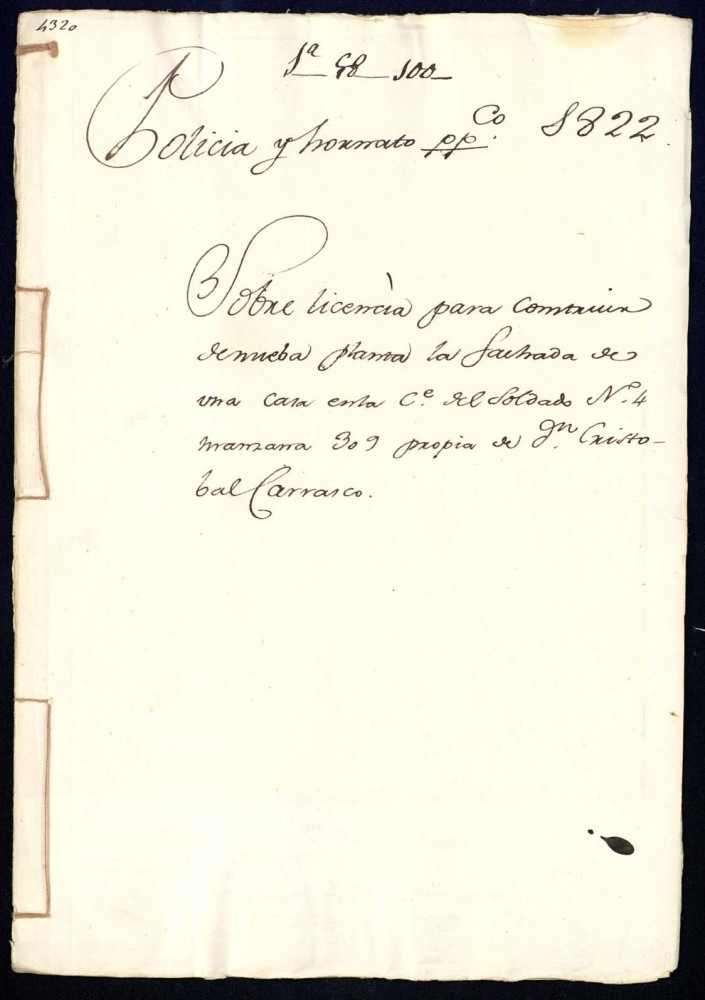 4320
1ª 58 100
Policia y hornato pp.Co 1822
Sobre licencia para construir
de nueba planta la fachada de
una casa en la C.e del Soldado N.º 4
manzana 309 propia de D.n Cristo-
bal Carrasco.